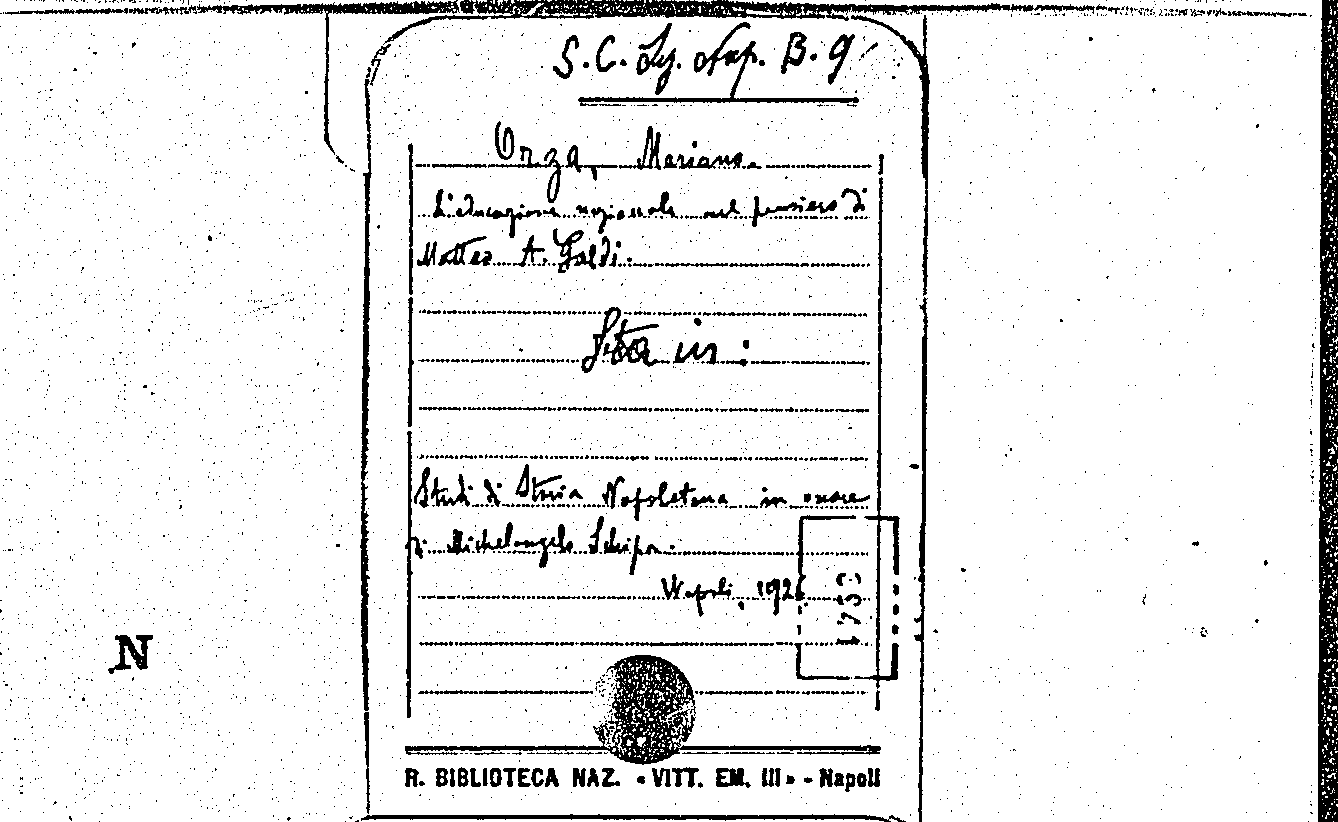 S. C. Lg. Nap. B. 9
Orza, Mariano.
L'educazione nazionale nel pensiero di
Matteo A. Galdi.
Sta in:
Studi di Storia Napoletana in onore
di Michelangelo Schipa.
Napoli, 1926
N
R. BIBLIOTECA NAZ. « VITT. EM. III » - Napoli